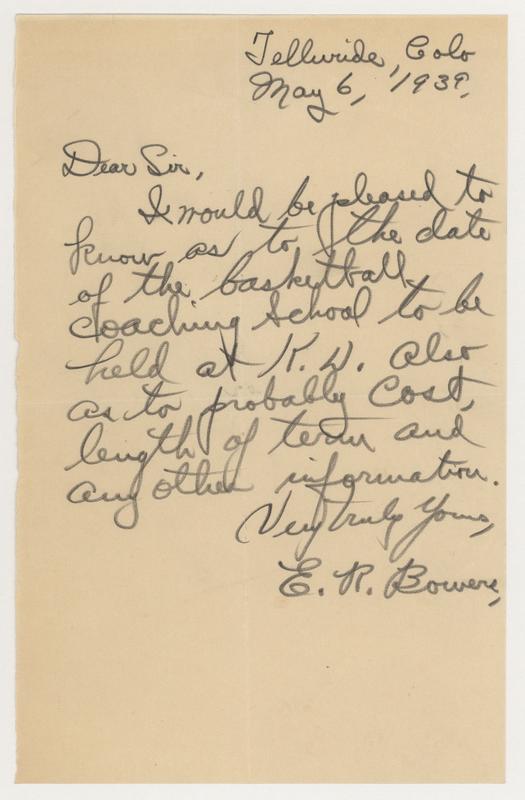 Telluride, Colo
May 6, 1939.
Dear Sir,
I would be pleased to
know as to the date
of the basketball
coaching school to be
held at K. U. Also
as to probably cost,
length of term and
any other information.
Very truly yours,
E. R. Bowers,